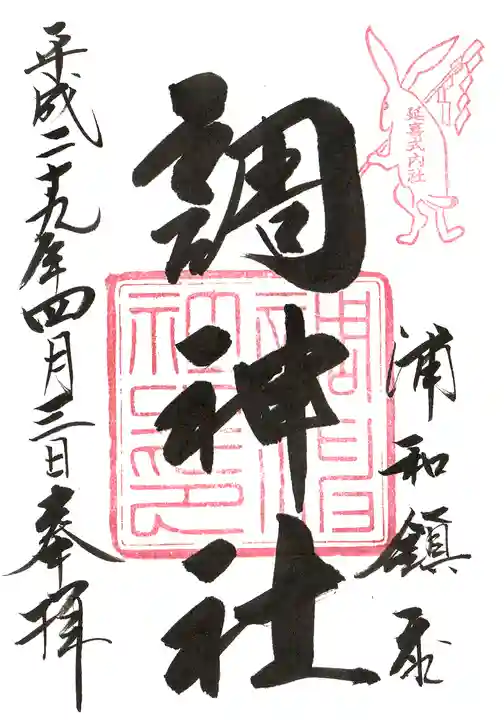 延喜式内社
浦和鎮座
調神社
平成二十九年四月三日奉拝